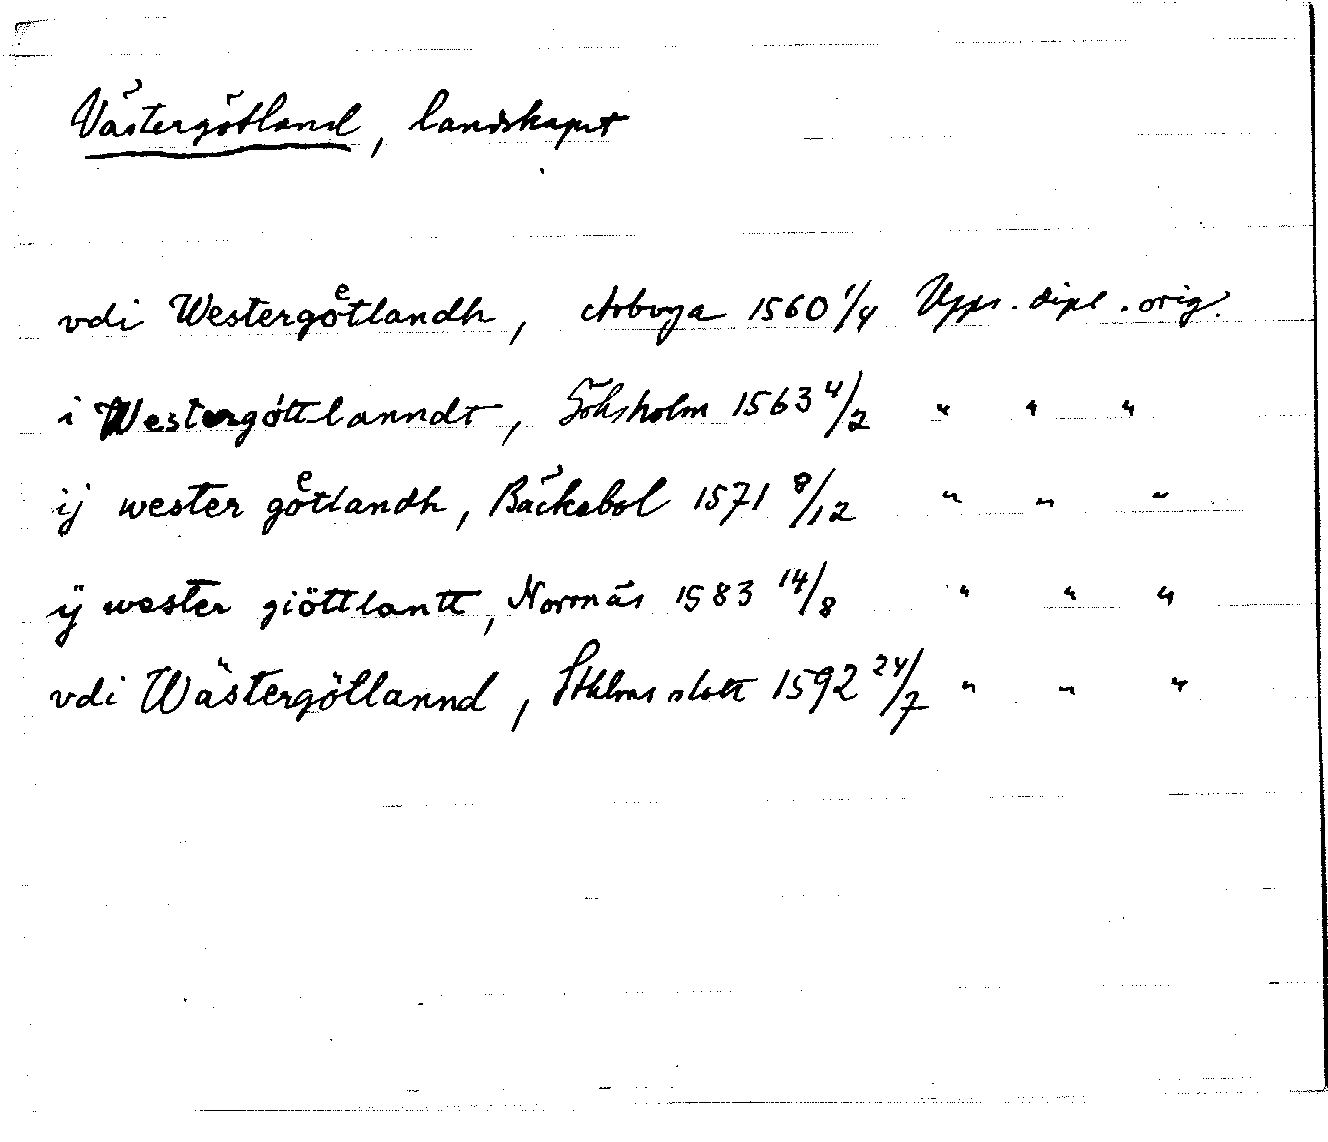 Västergötland, landskapet
vdi Westergoͤtlandh, Arboga 1560 1/4 Upps. dipl. orig.
i Westergöttlanndt, Söksholm 1563 4/2 " " "
ij wester goͤtlandh, Bäckabol 1571 8/12 " " "
ÿ wester giöttlantt, Norrnäs 1583 14/8 " " "
vdi Wästergötlannd, Sthlms slott 1592 24/7 " " "